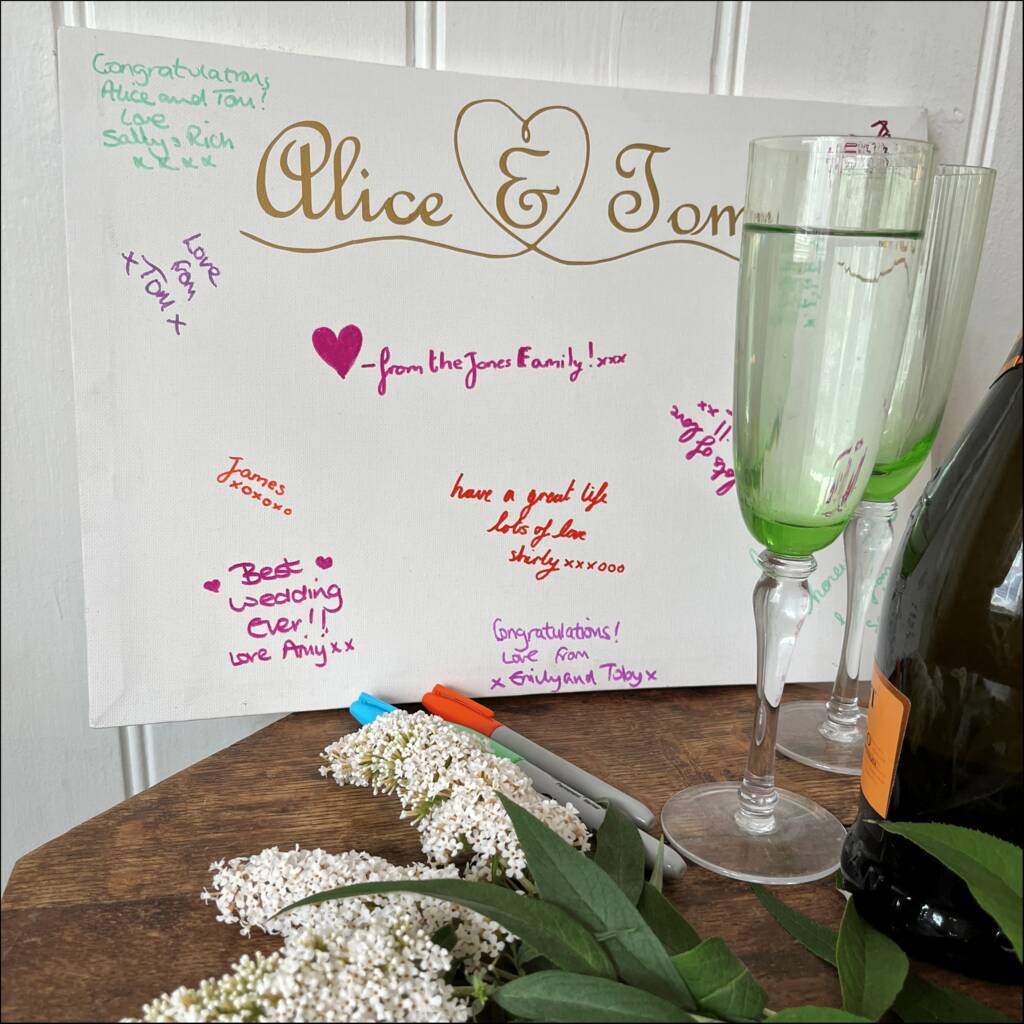 Congratulations
Alice and Tom!
Love
Sally & Rich
xxxx
Alice & Tom
Love
from
x Tom x
-from the Jones Family! xxx
lots of love
!! xx
James
xoxoxo
have a great life
lots of love
shirly xxxooo
Best
wedding
Ever!!
Love Amy xx
Congratulations!
Love from
x Emily and Toby x